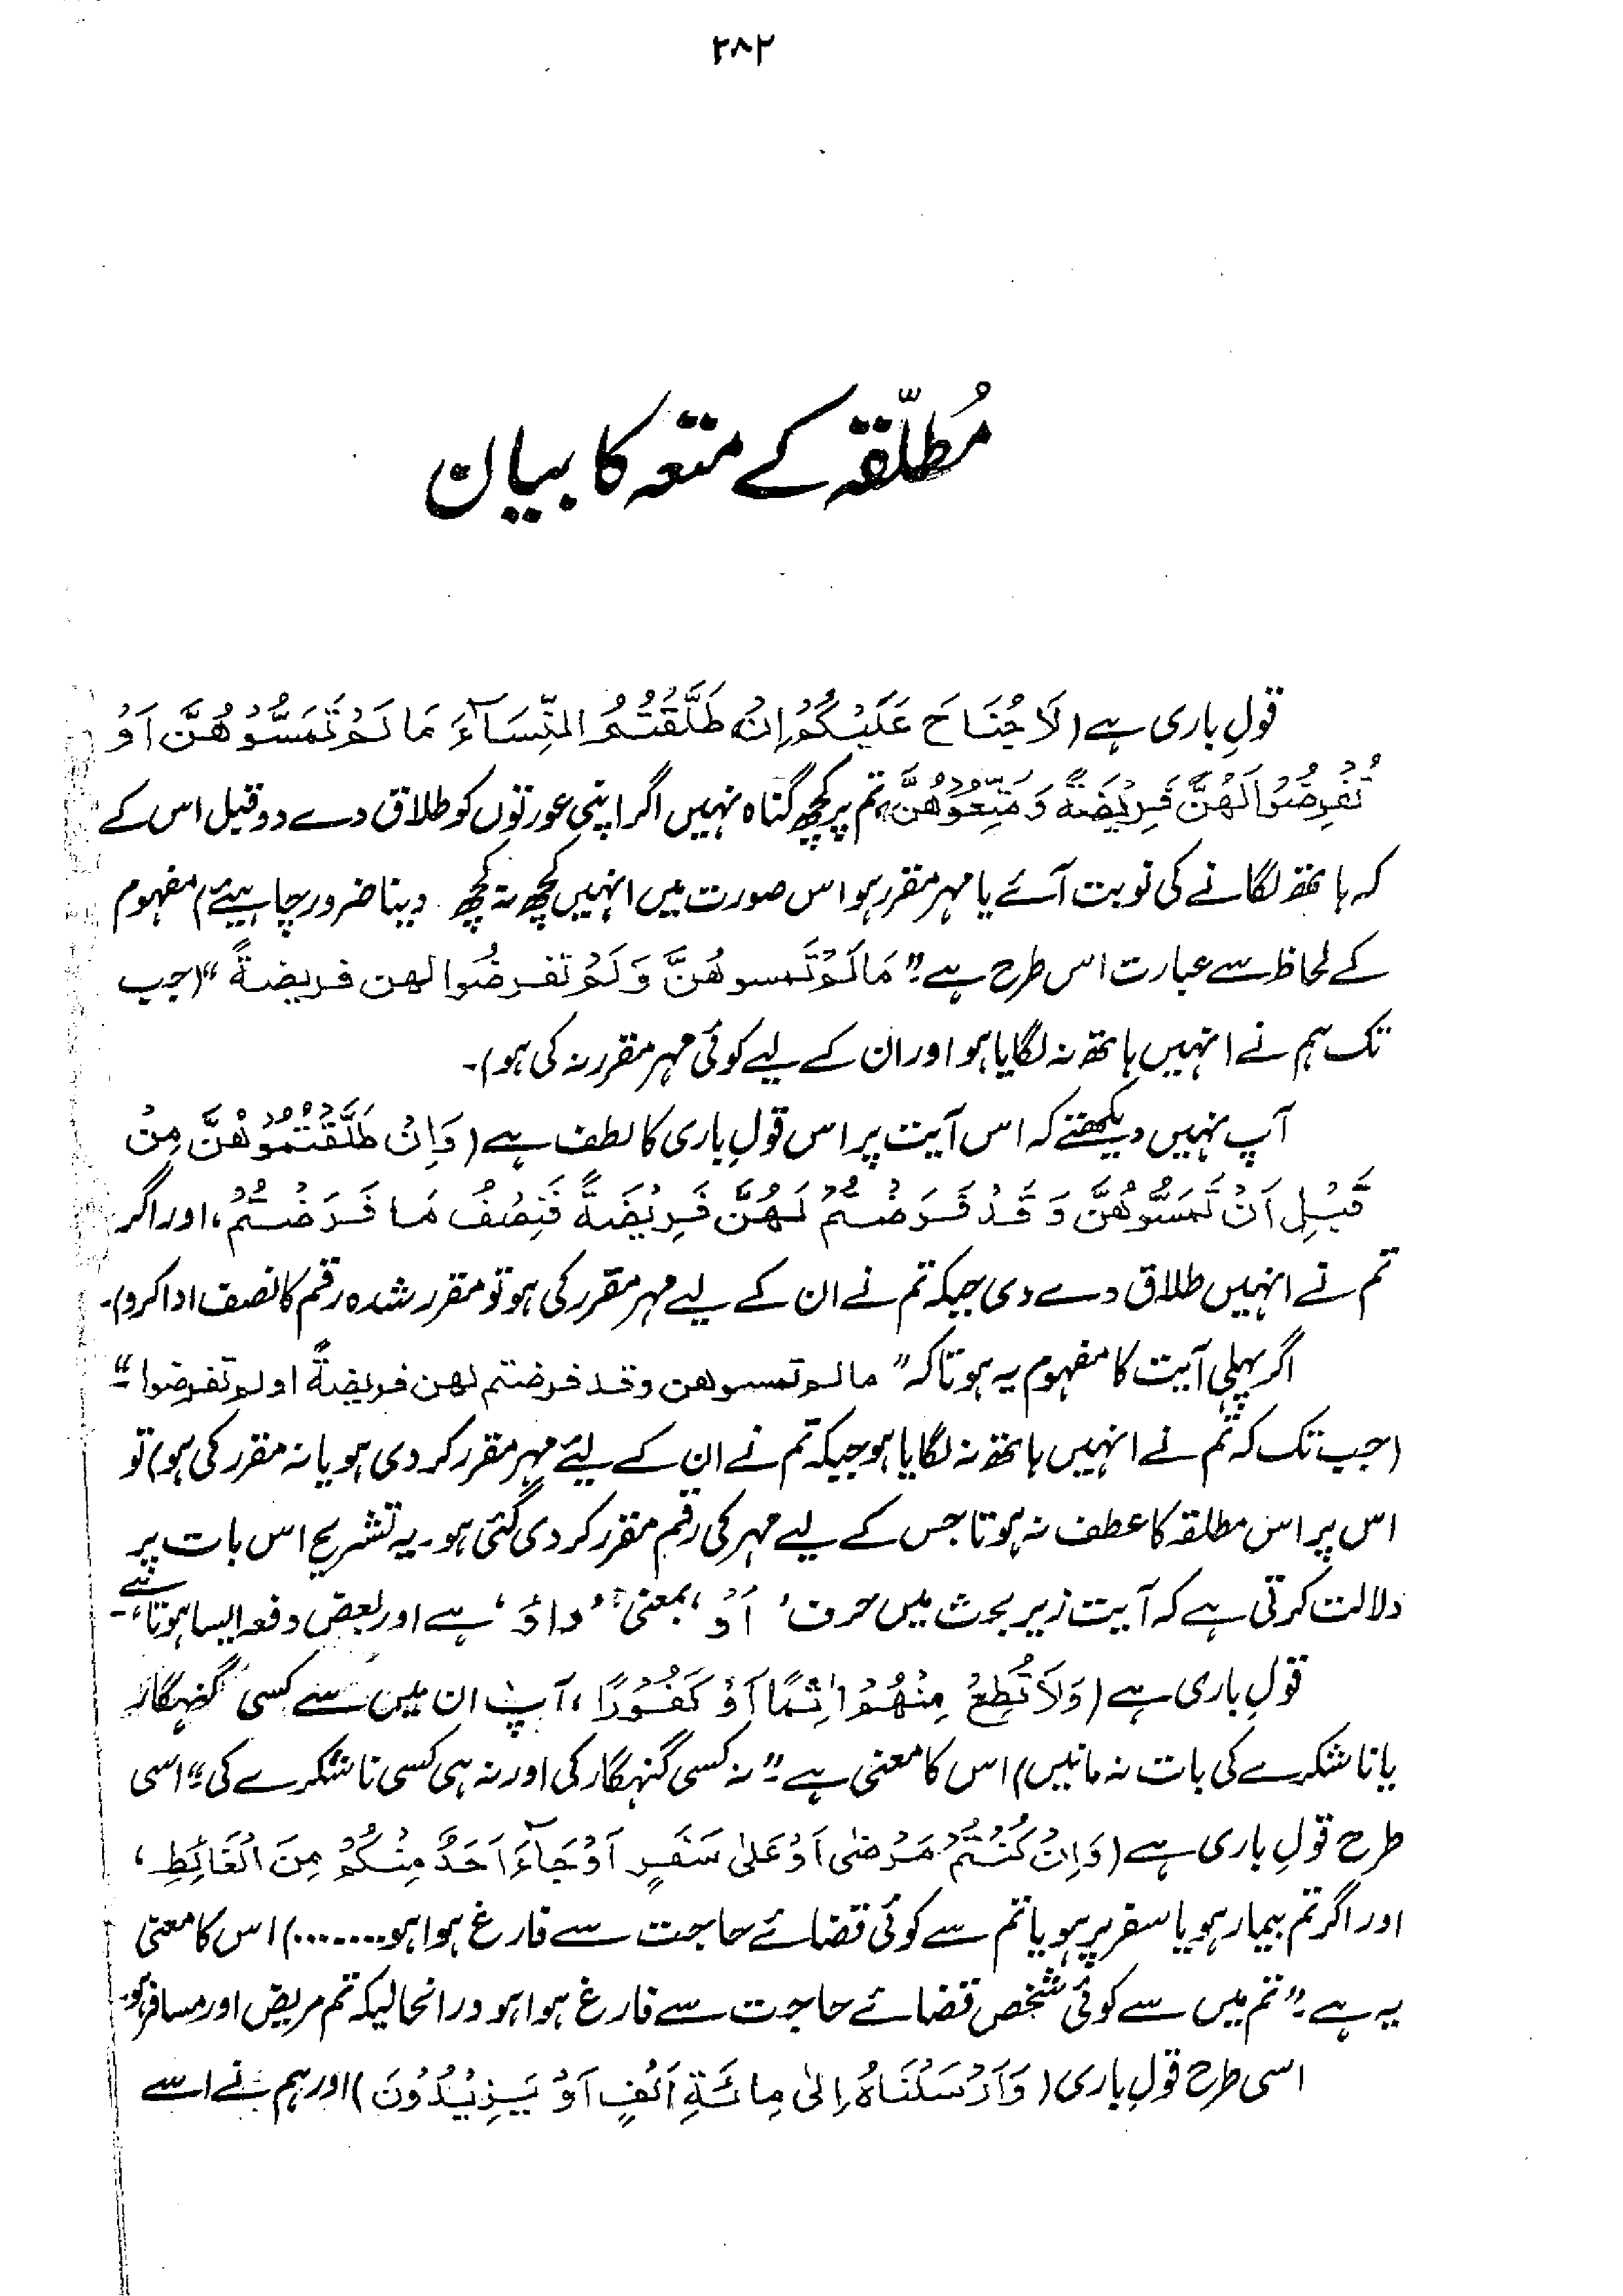 ۲۸۲
مُطلّقہ کے متعہ کا بیان
قولِ باری ہے (لَا جُنَاحَ عَلَيْكُمْ اِنْ طَلَّقْتُمُ النِّسَآءَ مَا لَمْ تَمَسُّوْهُنَّ اَوْ
تَفْرِضُوْا لَهُنَّ فَرِيْضَةً وَمَتِّعُوْهُنَّ، تم پر کچھ گناہ نہیں اگر اپنی عورتوں کو طلاق دے دو قبل اس کے
کہ ہاتھ لگانے کی نوبت آئے یا مہر مقرر ہو اس صورت میں انہیں کچھ نہ کچھ دینا ضرور چاہیئے) مفہوم
کے لحاظ سے عبارت اس طرح ہے "مَا لَمْ تَمسوهُنَّ وَلَمْ تفرضُوا لهن فريضةً" (جب
تک ہم نے انہیں ہاتھ نہ لگایا ہو اور ان کے لیے کوئی مہر مقرر نہ کی ہو)۔
آپ نہیں دیکھتے کہ اس آیت پر اس قولِ باری کا لطف ہے (وَاِنْ طَلَّقْتُمُوْهُنَّ مِنْ
قَبْلِ اَنْ تَمَسُّوْهُنَّ وَقَدْ فَرَضْتُمْ لَهُنَّ فَرِيْضَةً فَنِصْفُ مَا فَرَضْتُمْ، اور اگر
تم نے انہیں طلاق دے دی جبکہ تم نے ان کے لیے مہر مقرر کی ہو تو مقرر شدہ رقم کا نصف ادا کرو)۔
اگر پہلی آیت کا مفہوم یہ ہوتا کہ "مالم تمسوهن وقد فرضتم لهن فريضةً اولم تفرضوا"۔
(جب تک کہ تم نے انہیں ہاتھ نہ لگایا ہو جبکہ تم نے ان کے لیئے مہر مقرر کر دی ہو یا نہ مقرر کی ہو) تو
اس پر اس مطلقہ کا عطف نہ ہوتا جس کے لیے مہر کی رقم مقرر کر دی گئی ہو۔ یہ تشریح اس بات پر
دلالت کرتی ہے کہ آیت زیر بحث میں حرف ' اَوْ ' بمعنی ' واؤ ' ہے اور بعض دفعہ ایسا ہوتا ہے۔
قولِ باری ہے (وَلَا تُطِعْ مِنْهُمْ اٰثِمًا اَوْ كَفُوْرًا، آپ ان میں سے کسی گنہگار
یا ناشکرے کی بات نہ مانیں) اس کا معنی ہے "نہ کسی گنہگار کی اور نہ ہی کسی ناشکرے کی" اسی
طرح قولِ باری ہے (وَاِنْ كُنْتُمْ مَرْضٰى اَوْ عَلٰى سَفَرٍ اَوْ جَآءَ اَحَدٌ مِنْكُمْ مِنَ الْغَائِطِ،
اور اگر تم بیمار ہو یا سفر پر ہو یا تم سے کوئی قضائے حاجت سے فارغ ہوا ہو........) اس کا معنی
یہ ہے "تم میں سے کوئی شخص قضائے حاجت سے فارغ ہوا ہو درانحالیکہ تم مریض اور مسافر ہو۔
اسی طرح قولِ باری (وَاَرْسَلْنَاهُ اِلٰى مِائَةِ اَلْفٍ اَوْ يَزِيْدُوْنَ) اور ہم نے اسے